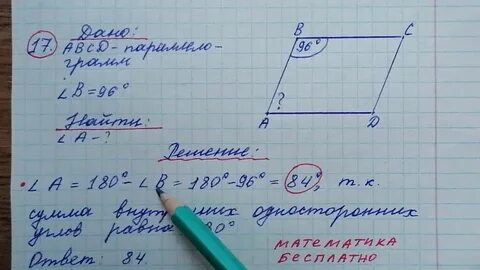 17. Дано:
ABCD - параллело-
грамм
∠B = 96°
Найти:
∠A - ?
B C
96°
?
A D
Решение:
∠A = 180° - ∠B = 180° - 96° = 84°, т.к.
сумма внутренних односторонних
углов равна
Ответ: 84.
МАТЕМАТИКА
БЕСПЛАТНО